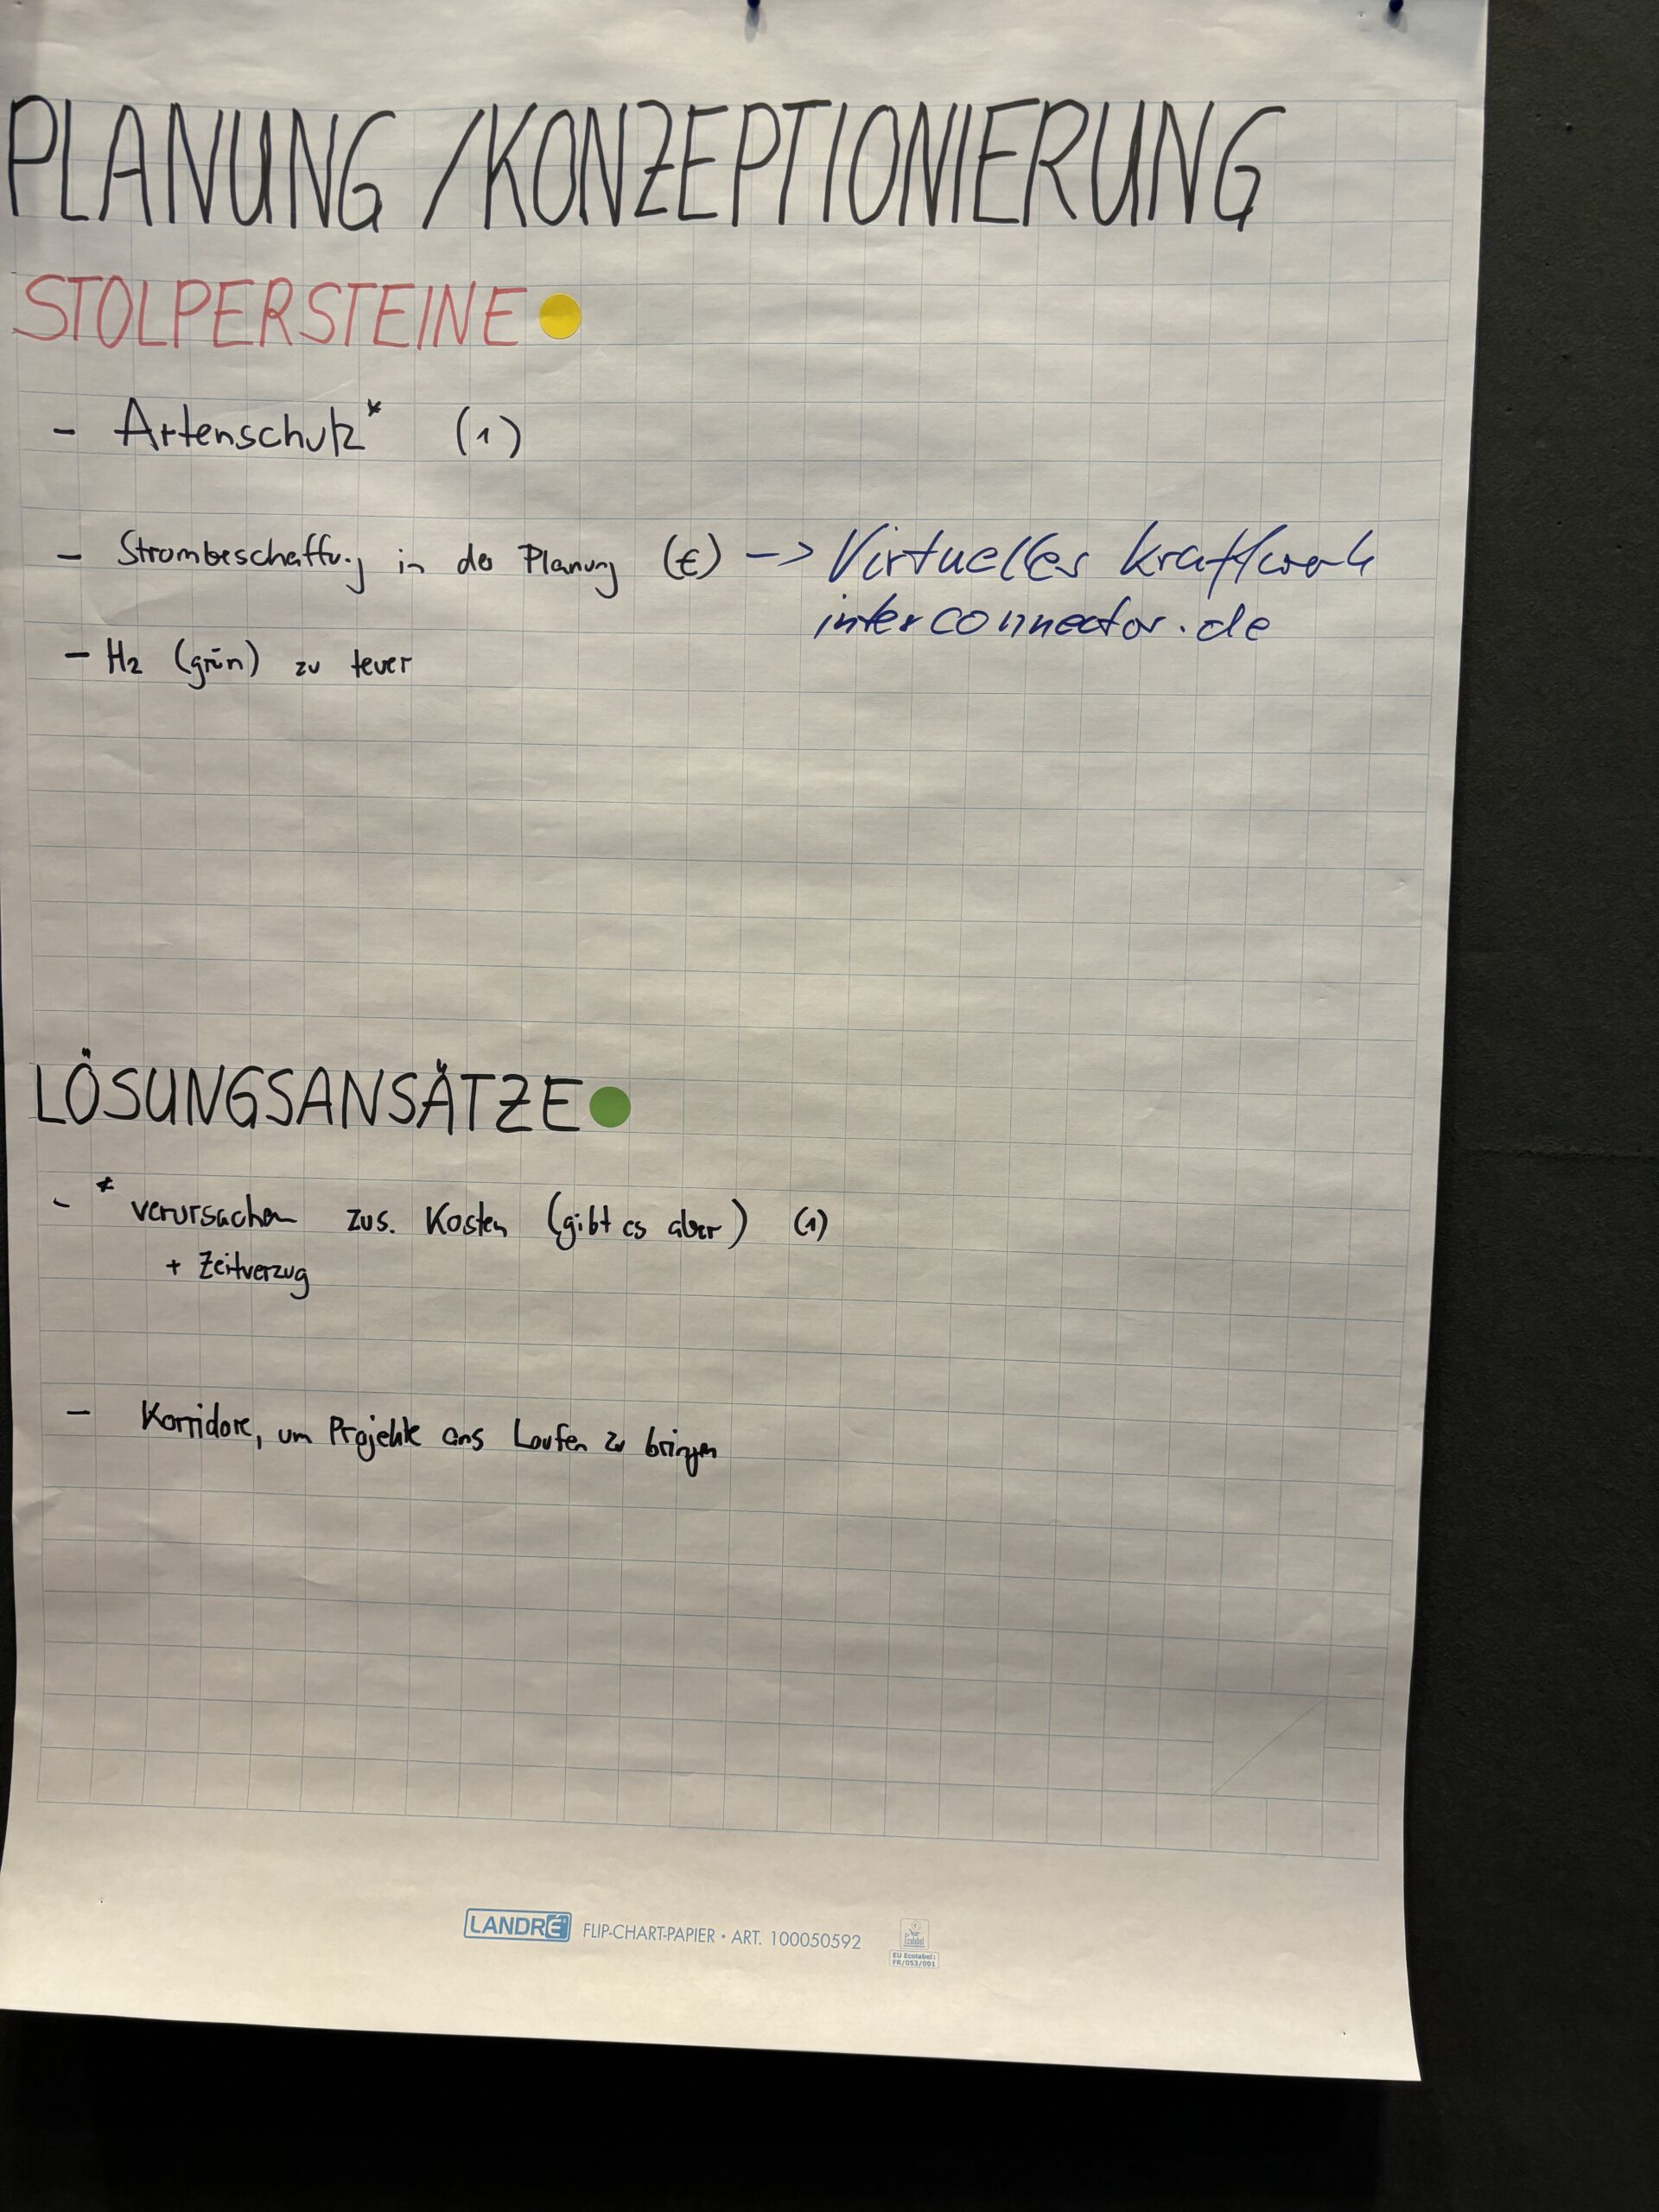 PLANUNG / KONZEPTIONIERUNG
STOLPERSTEINE
- Artenschutz* (1)
- Strombeschaffung in der Planung (€) -> Virtuelles Kraftwerk
interconnector.de
- H2 (grün) zu teuer
LÖSUNGSANSÄTZE
- * verursachen zus. Kosten (gibt es aber) (1)
+ Zeitverzug
- Korridore, um Projekte ans Laufen zu bringen
LANDRÉ FLIP-CHART-PAPIER • ART. 100050592
Ecolabel
EU Ecolabel:
FR/053/001